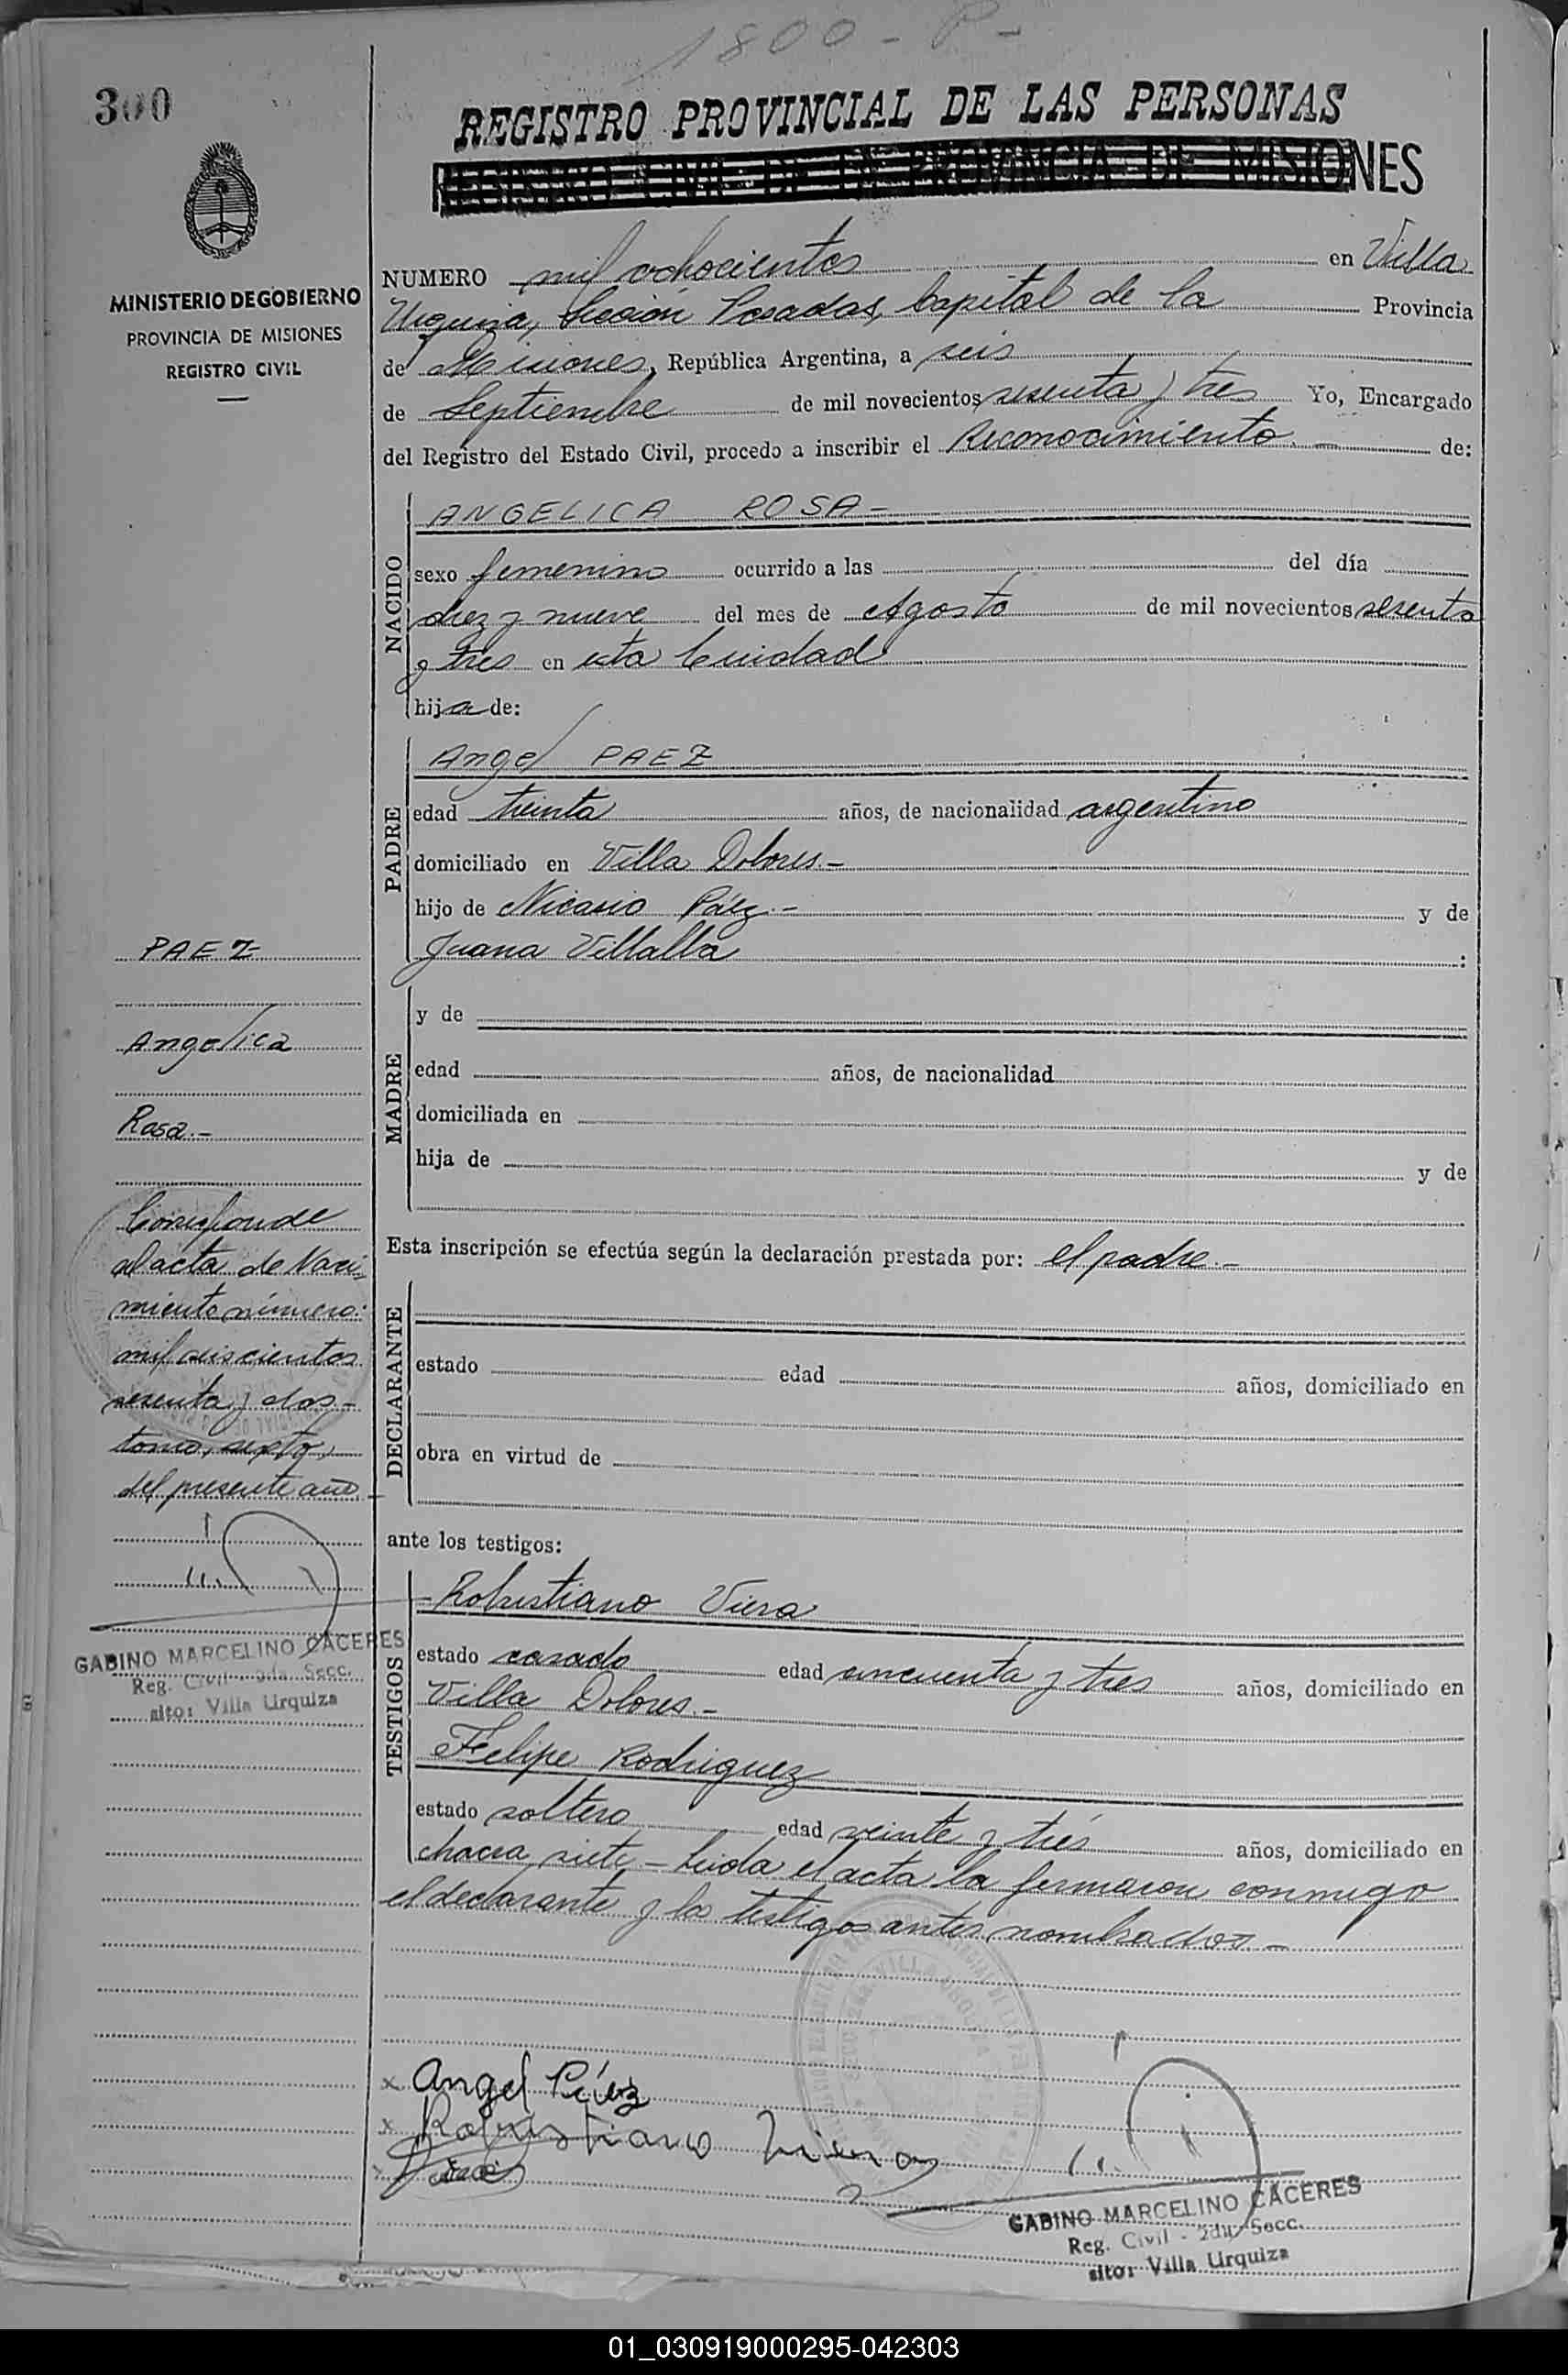 1800 - P -
300
REGISTRO PROVINCIAL DE LAS PERSONAS
REGISTRO CIVIL DE LA PROVINCIA DE MISIONES
MINISTERIO DE GOBIERNO
PROVINCIA DE MISIONES
REGISTRO CIVIL
NUMERO mil ochocientos en Villa
Urquiza, Sección Posadas, Capital de la Provincia
de Misiones, República Argentina, a seis
de Septiembre de mil novecientos sesenta y tres Yo, Encargado
del Registro del Estado Civil, procedo a inscribir el Reconocimiento. — de:
NACIDO
ANGELICA ROSA -
sexo femenino ocurrido a las del día
diez y nueve del mes de Agosto de mil novecientos sesenta
y tres en esta Ciudad
hija de:
PADRE
Angel PAEZ
edad treinta años, de nacionalidad argentino
domiciliado en Villa Dolores.-
hijo de Nicasio Páez.- y de
Juana Villalba :
MADRE
y de
edad años, de nacionalidad
domiciliada en
hija de y de
Esta inscripción se efectúa según la declaración prestada por: el padre.-
DECLARANTE
estado edad años, domiciliado en
obra en virtud de
ante los testigos:
TESTIGOS
Robustiano Viera
estado casado edad cincuenta y tres años, domiciliado en
Villa Dolores.-
Felipe Rodriguez
estado soltero edad veinte y trés años, domiciliado en
chacra siete.- Leida el acta la firmaron conmigo
el declarante y los testigos antes nombrados.-
PAEZ
Angelica
Rosa.-
Corresponde
al acta de Naci-
miento número:
mil seiscientos
sesenta y dos.-
tomo, sexto,
del presente año.-
GABINO MARCELINO CACERES
Reg. Civil - 2da. Secc.
sito: Villa Urquiza
x Angel Páez
x Robustiano Viera
GABINO MARCELINO CACERES
Reg. Civil - 2da. Secc.
sito: Villa Urquiza
01_030919000295-042303